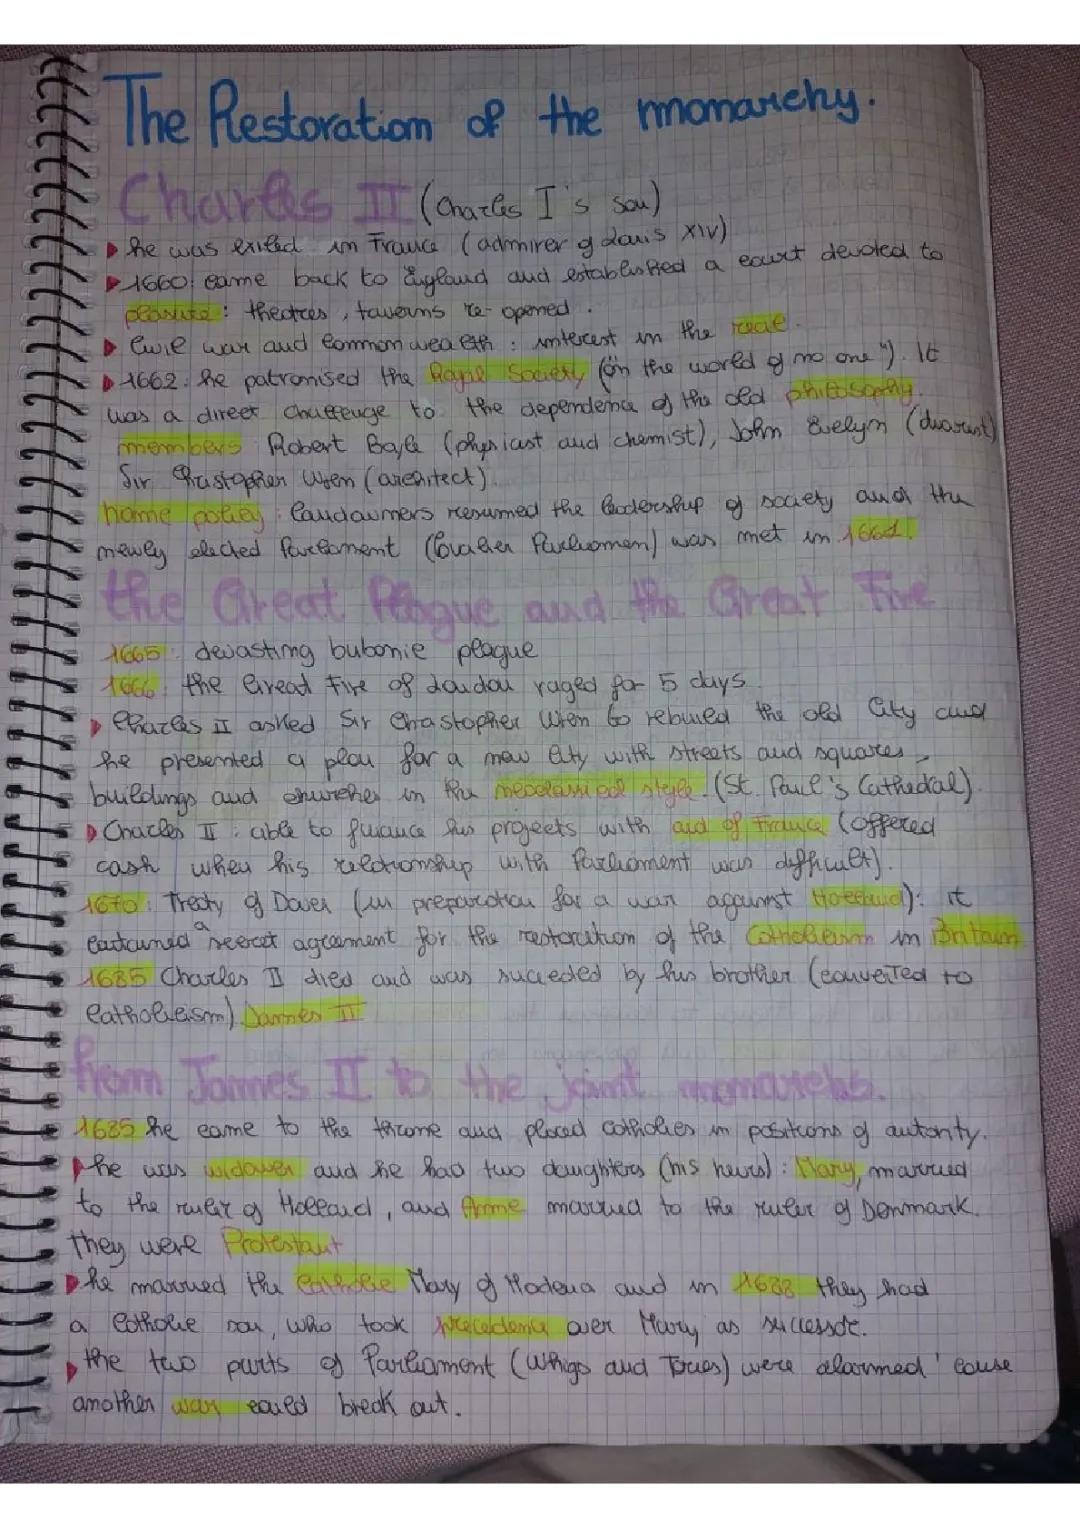 The Restoration of the monarchy.
Charles II (Charles I's son)
he was exiled in France (admirer of Louis XIV)
1660: came back to England and established a court devoted to
pleasure: theatres, taverns re-opened.
Civil war and Commonwealth: interest in the real.
1662: he patronised the Royal Society (in the world of no one"). It
was a direct challenge to the dependence of the old philosophy.
members: Robert Boyle (physicist and chemist), John Evelyn (diarist)
Sir Christopher Wren (architect).
home policy: Landowners resumed the leadership of society and the
newly elected Parliament (Cavalier Parliament) was met in 1661.
the Great Plague and the Great Fire
1665: devasting bubonic plague
1666: the Great Fire of London raged for 5 days.
Charles II asked Sir Christopher Wren to rebuild the old City and
he presented a plan for a new city with streets and squares,
buildings and churches in the neoclassical style. (St. Paul's Cathedral).
Charles II: able to finance his projects with aid of France (offered
cash when his relationship with Parliament was difficult).
1670: Treaty of Dover (in preparation for a war against Holland): it
contained a secret agreement for the restoration of the Catholicism in Britain
1685 Charles II died and was succeded by his brother (converted to
Catholicism) James II
from James II to the joint monarchs.
1685 he came to the throne and placed catholics in positions of autority.
he was widower and he had two daughters (his heirs): Mary, married
to the ruler of Holland, and Anne married to the ruler of Denmark.
they were Protestant
he married the Catholic Mary of Modena and in 1688 they had
a Catholic son, who took precedence over Mary as successor.
the two parts of Parliament (Whigs and Tories) were alarmed 'cause
another war could break out.